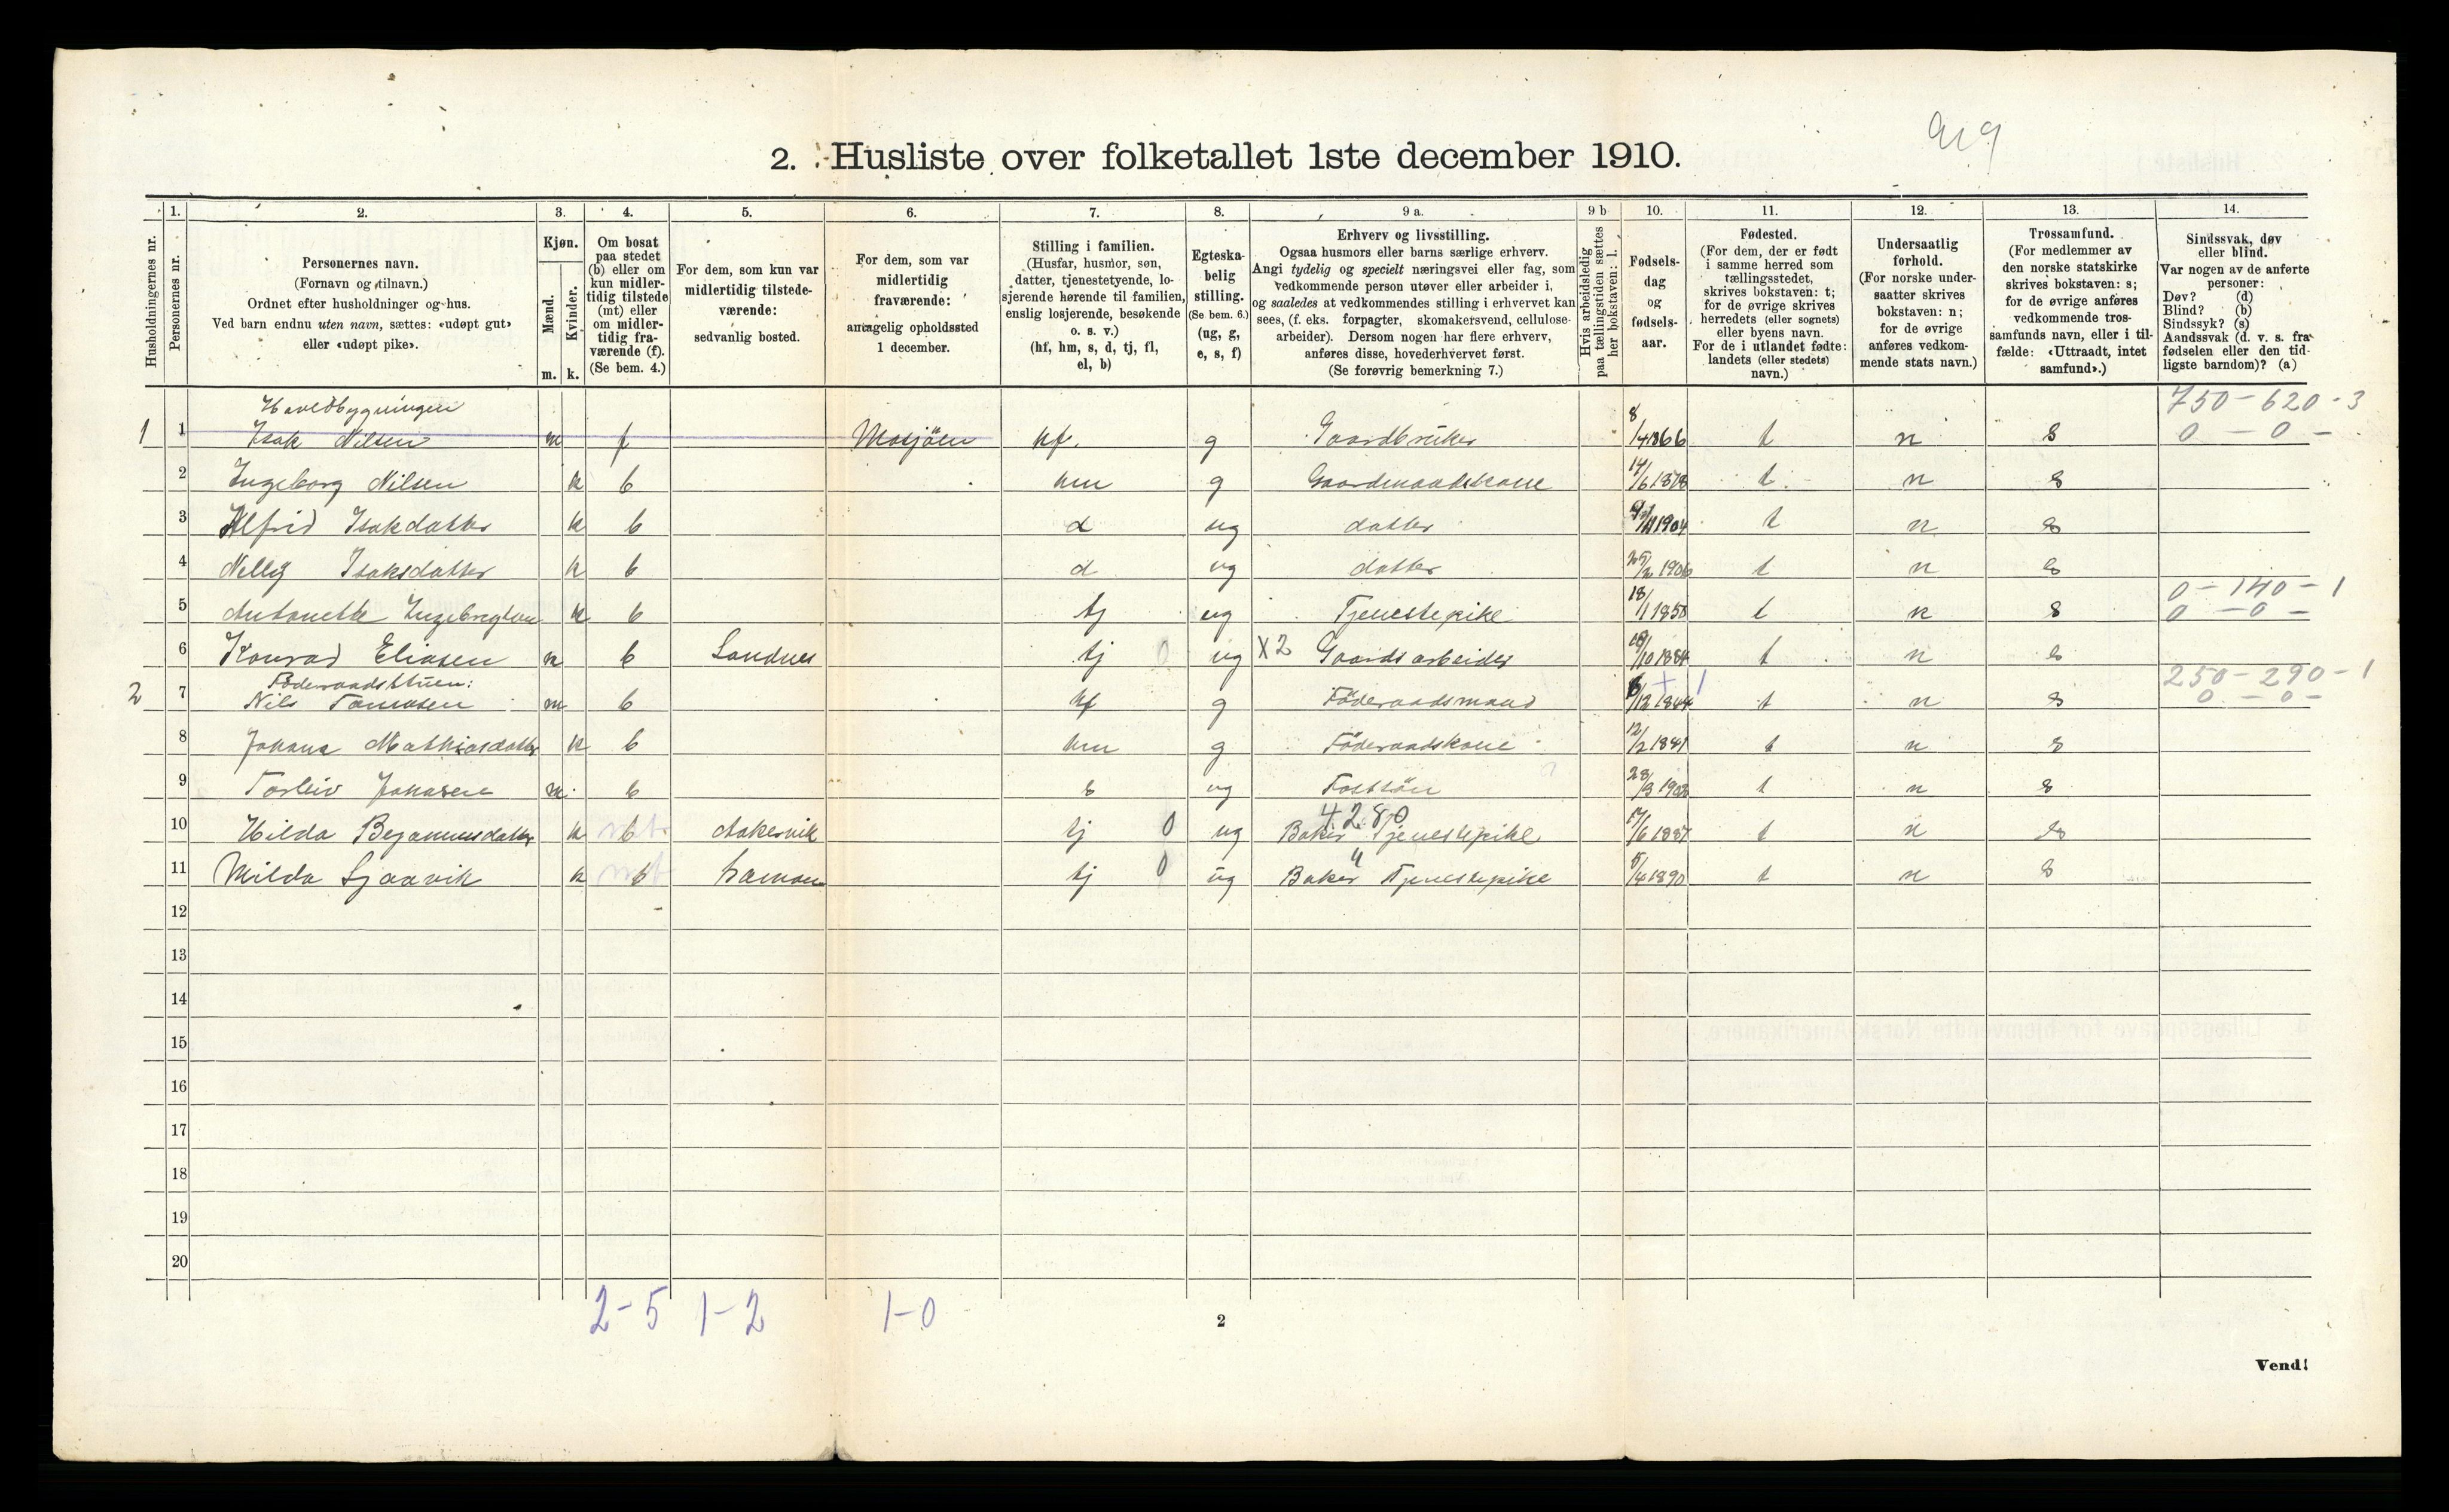 919
2. Husliste over folketallet 1ste december 1910.
Husholdningernes nr.
1.
Personernes nr.
2.
Personernes navn.
(Fornavn og tilnavn.)
Ordnet efter husholdninger og hus.
Ved barn endnu uten navn, sættes: «udøpt gut»
eller «udøpt pike».
3.
Kjøn.
Mænd.
Kvinder.
m. k.
4.
Om bosat
paa stedet
(b) eller om
kun midler-
tidig tilstede
(mt) eller
om midler-
tidig fra-
værende (f).
(Se bem. 4.)
5.
For dem, som kun var
midlertidig tilstede-
værende:
sedvanlig bosted.
6.
For dem, som var
midlertidig
fraværende:
antagelig opholdssted
1 december.
7.
Stilling i familien.
(Husfar, husmor, søn,
datter, tjenestetyende, lo-
sjerende hørende til familien,
enslig losjerende, besøkende
o. s. v.)
(hf, hm, s, d, tj, fl,
el, b)
8.
Egteska-
belig
stilling.
(Se bem. 6.)
(ug, g,
e, s, f)
9 a.
Erhverv og livsstilling.
Ogsaa husmors eller barns særlige erhverv.
Angi tydelig og specielt næringsvei eller fag, som
vedkommende person utøver eller arbeider i,
og saaledes at vedkommendes stilling i erhvervet kan
sees, (f. eks. forpagter, skomakersvend, cellulose-
arbeider). Dersom nogen har flere erhverv,
anføres disse, hovederhvervet først.
(Se forøvrig bemerkning 7.)
9 b
Hvis arbeidsledig
paa tællingstiden sættes
her bokstaven: l.
10.
Fødsels-
dag
og
fødsels-
aar.
11.
Fødested.
(For dem, der er født
i samme herred som
tællingsstedet,
skrives bokstaven: t;
for de øvrige skrives
herredets (eller sognets)
eller byens navn.
For de i utlandet fødte:
landets (eller stedets)
navn.)
12.
Undersaatlig
forhold.
(For norske under-
saatter skrives
bokstaven: n;
for de øvrige
anføres vedkom-
mende stats navn.)
13.
Trossamfund.
(For medlemmer av
den norske statskirke
skrives bokstaven: s;
for de øvrige anføres
vedkommende tros-
samfunds navn, eller i til-
fælde: «Uttraadt, intet
samfund».)
14.
Sindssvak, døv
eller blind.
Var nogen av de anførte
personer:
Døv? (d)
Blind? (b)
Sindssyk? (s)
Aandssvak (d. v. s. fra
fødselen eller den tid-
ligste barndom)? (a)
Hovedbygningen 750 - 620 - 3
1 1 Isak Nilsen m f Mosjöen hf. g Gaardbruker 8/4 1866 t n s 0 - 0 -
2 Ingeborg Nilsen k b hm g Gaardmandskone 14/6 1878 t n s
3 Alfrid Isakdatter k b d ug datter 1904 t n s
4 Nelly Isaksdatter k b d ug datter 25/2 1906 t n s
0 - 140 - 1
5 Antonette Ingebregtsen k b tj ug Tjenestepike 18/1 1858 t n s 0 - 0 -
6 Konrad Eliasen m b Sandnes tj 0 ug X2 Gaardsarbeider /10 1884 t n s
Föderaadstuen: 250 - 290 - 1
2 7 Nils Tomasen m b hf g Föderaadsmand 6/12 1844 t n s 0 - 0 -
8 Johana Mathiasdatter k b hm g Föderaadskone 12/2 1841 t n s
9 Torleiv Johansen m b s ug Fostsön 28/3 1902 t n s
4280
10 Hilda Bejaminsdatter k mt b Aakervik tj 0 ug Baker Tjenestepike 17/6 1887 t n s
"
11 Milda Sjaavik k mt b tj 0 ug Baker Tjenestepike 5/4 1890 t n s
12
13
14
15
16
17
18
19
20
2-5 1-2 1-0
2
Vend!